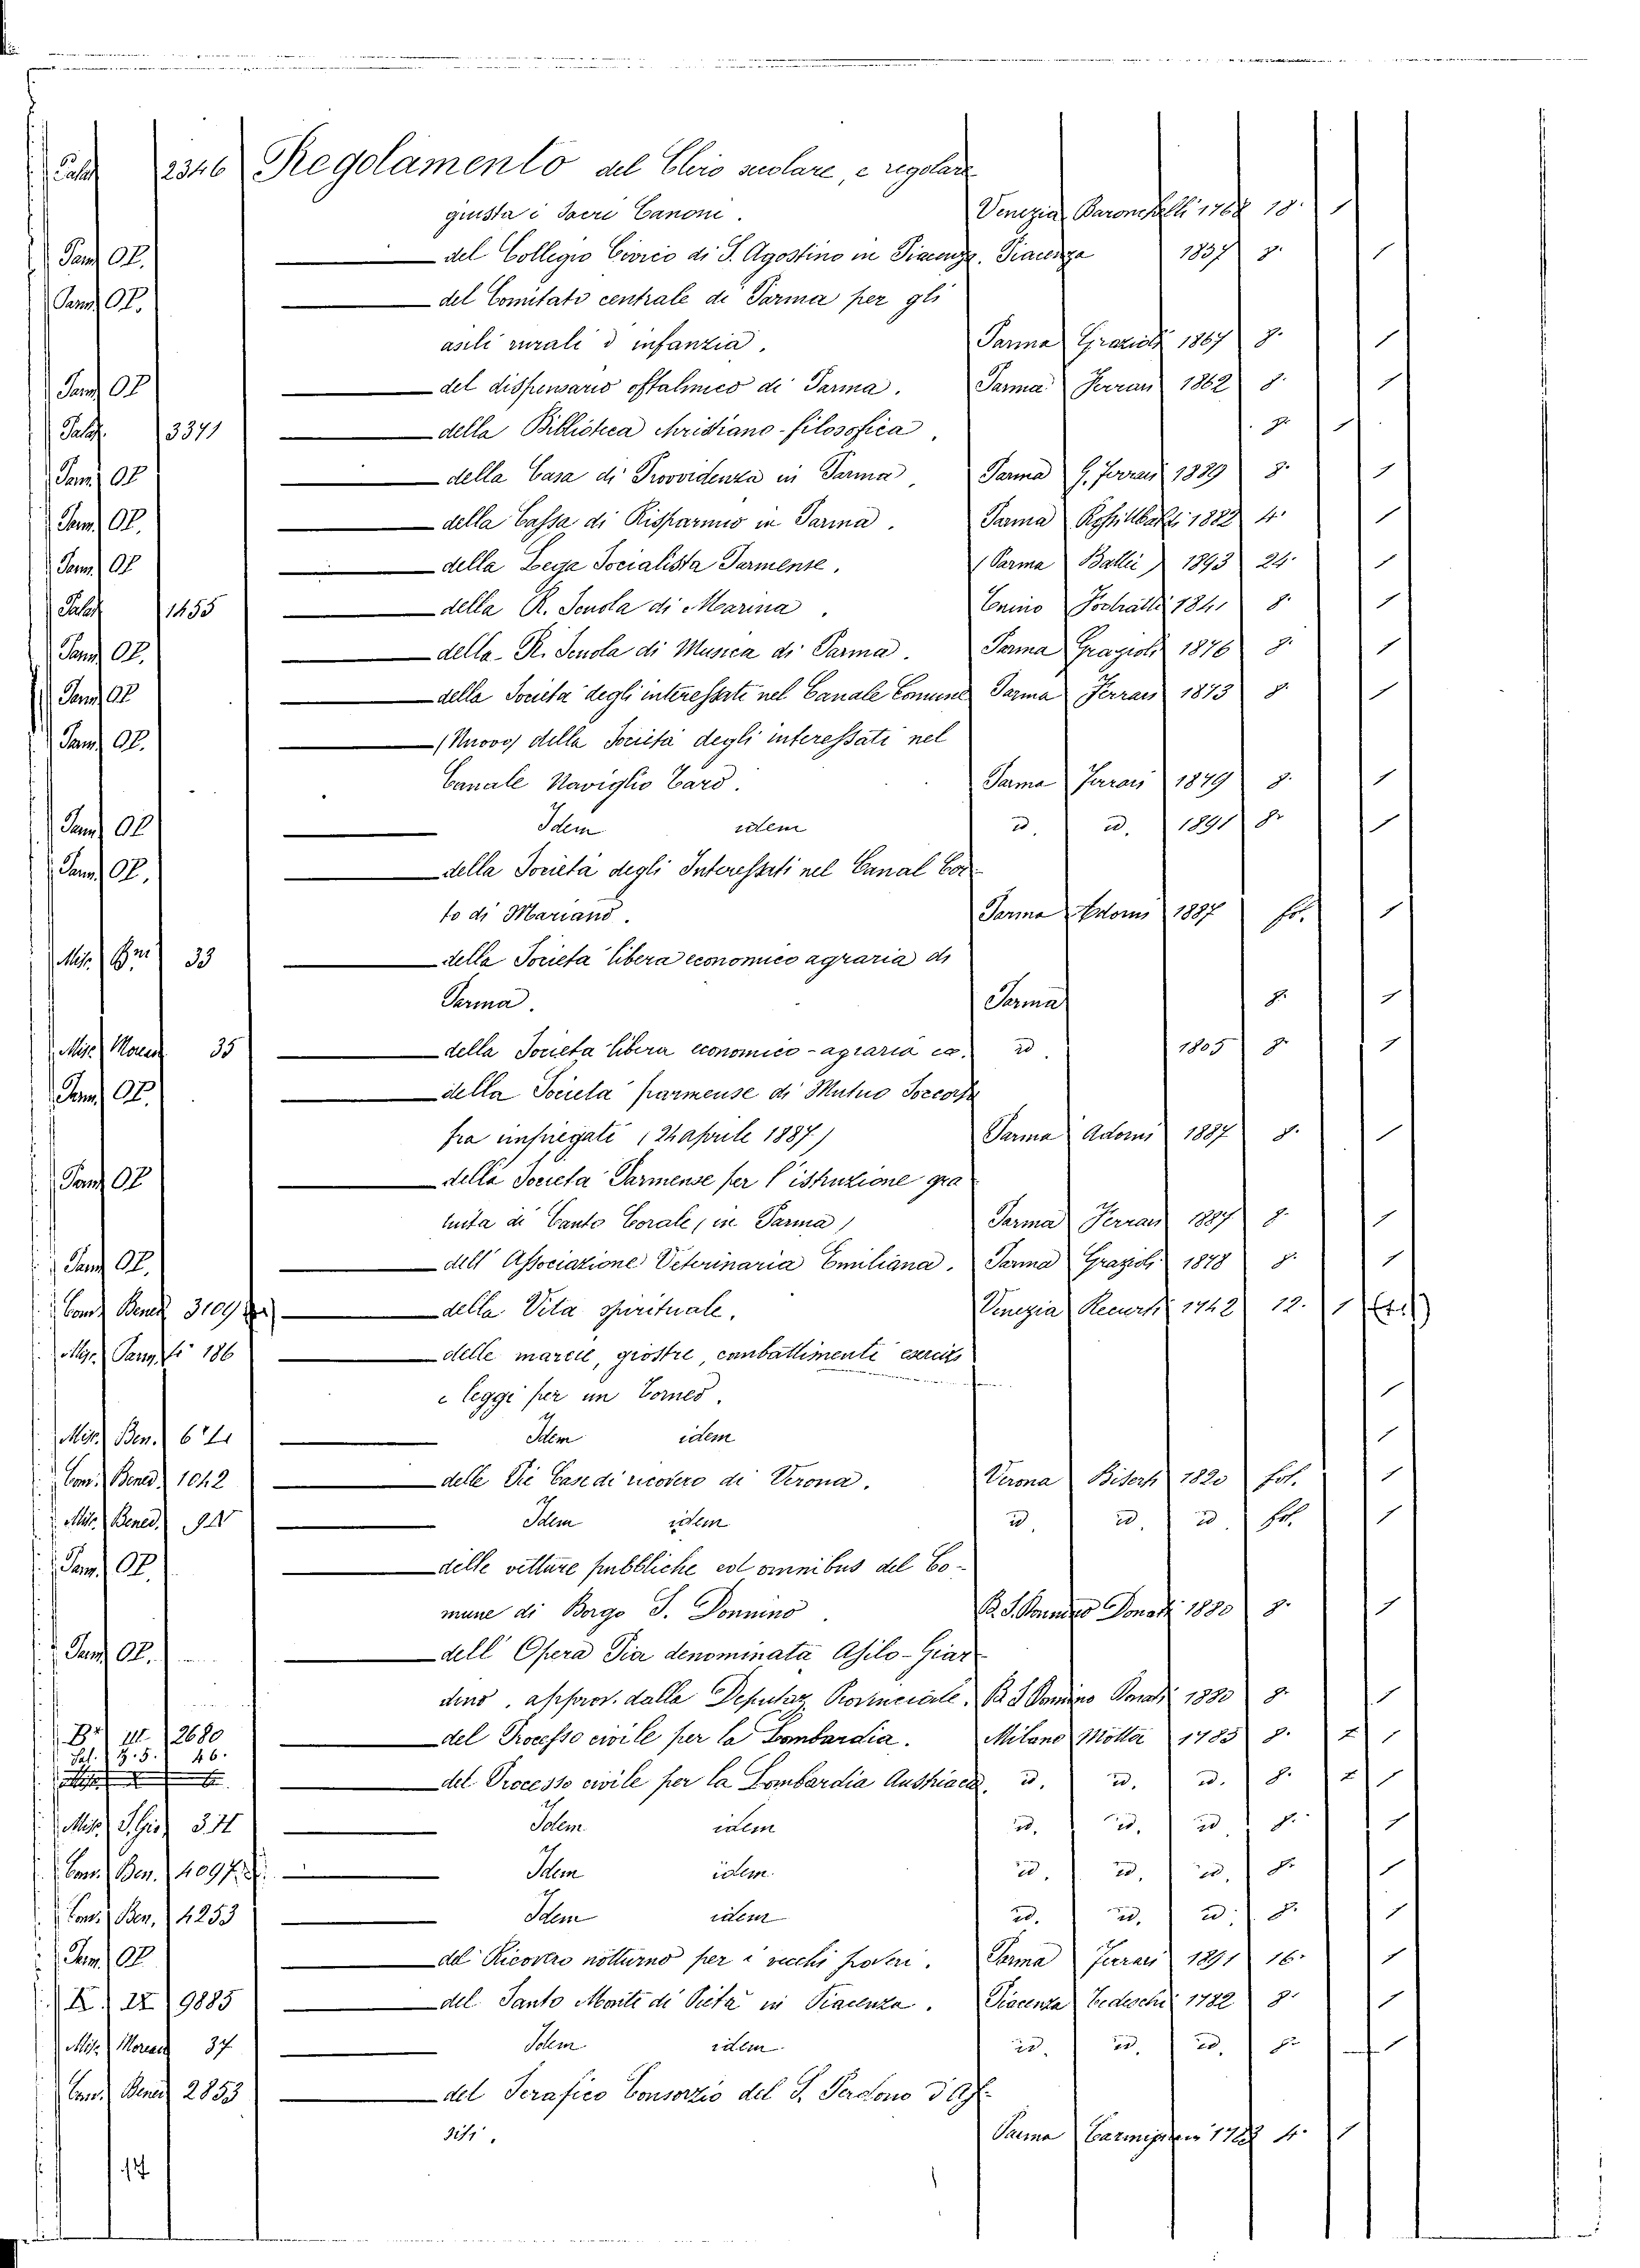 Palat 2346 Regolamento del Clero secolare, e regolare
giusta i Sacri Canoni. Venezia 18. 1
Parm OP. del Collegio Civico di S. Agostino in Piacenza. Piacenza 1837 8. 1
Parm OP. del Comitato centrale di Parma per gli
asili rurali d'infanzia. Parma Grazioli 1867 8. 1
Parm OP del dispensario oftalmico di Parma. Parma Ferrari 1862 8. 1
Palat. 3371 della Biblioteca christiano-filosofica, 8. 1
Parm OP della Casa di Provvidenza in Parma, Parma G. Ferrari 1889 8. 1
Parm OP. della Cassa di Risparmio in Parma. Parma 4. 1
Parm OP della Lega Socialista Parmense. (Parma Battei) 1893 24. 1
Palat 1455 della R. Scuola di Marina. 1841 8. 1
Parm OP. della R. Scuola di Musica di Parma. Parma Grazioli 1876 8. 1
Parm OP della Società degli interessati nel Canale Comune Parma Ferrari 1873 8. 1
Parm OP. (Nuovo) della Società degli interessati nel
Canale Naviglio Taro. Parma Ferrari 1879 8. 1
Parm OP Idem idem id. id. 1891 8. 1
Parm OP. della Società degli Interessati nel Canal Cor-
to di Mariano. Parma Adorni 1887 fo. 1
Misc. 33 della Società libera economico agraria di
Parma. Parma 8. 1
Misc Moreau 35 della Società libera economico-agraria ec. id. 1805 8. 1
Parm OP. della Società parmense di Mutuo Soccorso
fra impiegati (24 aprile 1887) Parma Adorni 1887 8. 1
Parm OP della Società Parmense per l'istruzione gra
tuita di Canto Corale (in Parma) Parma Ferrari 1887 8. 1
Parm OP. dell'Associazione Veterinaria Emiliana. Parma Grazioli 1878 8. 1
Cand Bened 3109 della Vita spirituale. Venezia Recurti 1742 12. 1
Misc. 186 delle marcie, giostre, conbattimenti
e leggi per un Torneo. 1
Misc. Ben. Idem idem 1
Con. Bened. 1042 delle Pie Case di ricovero di Verona. Verona 1820 fol. 1
Misc. Bened. Idem idem id. id. id. fol. 1
Parm. OP. delle vetture pubbliche ed omnibus del Co-
mune di Borgo S. Donnino. B. S. Donnino Donati 1880 8. 1
Parm OP. dell'Opera Pia denominata Asilo-Giar
dino, approv. dalla Deputaz Provinciale. B. S. Donnino Donati 1880 8. 1
Br III 2680 del Processo civile per la Lombardia. Milano Motta 1785 8. 2 1
Pal. 3.5. 46.
del Processo civile per la Lombardia Austriaca. id. id. id. 8. 2 1
Misc. S. Gio. Idem idem id. id. id 8. 1
Con. Ben. 4097 Idem idem. id. id. id. 8. 1
Con. Ben. 4253 Idem idem id. id. id. 8. 1
Parm. OP del Ricovero notturno per i vecchi poveri. Parma Ferrari 1891 16. 1
9885 del Santo Monte di Pietà in Piacenza. Piacenza Tedeschi 1782 8. 1
Misc. Moreau 37 Idem idem id. id. id. 8. 1
Con. Bened 2853 del Serafico Consorzio del S. Perdono d'As-
sisi. Parma 4. 1